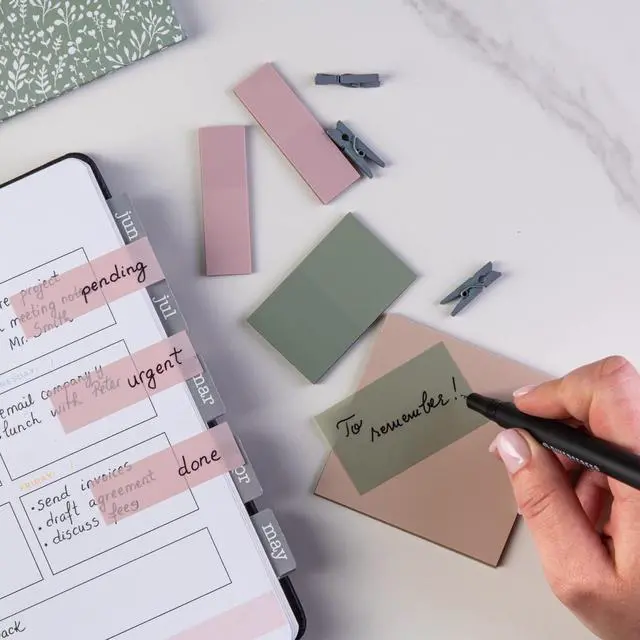 jun
project
pending
meeting notes
Mr. Smith
jul
email company
urgent
lunch with Peter
mar
done
send invoices
• draft agreement
• discuss fees
may
To remember!